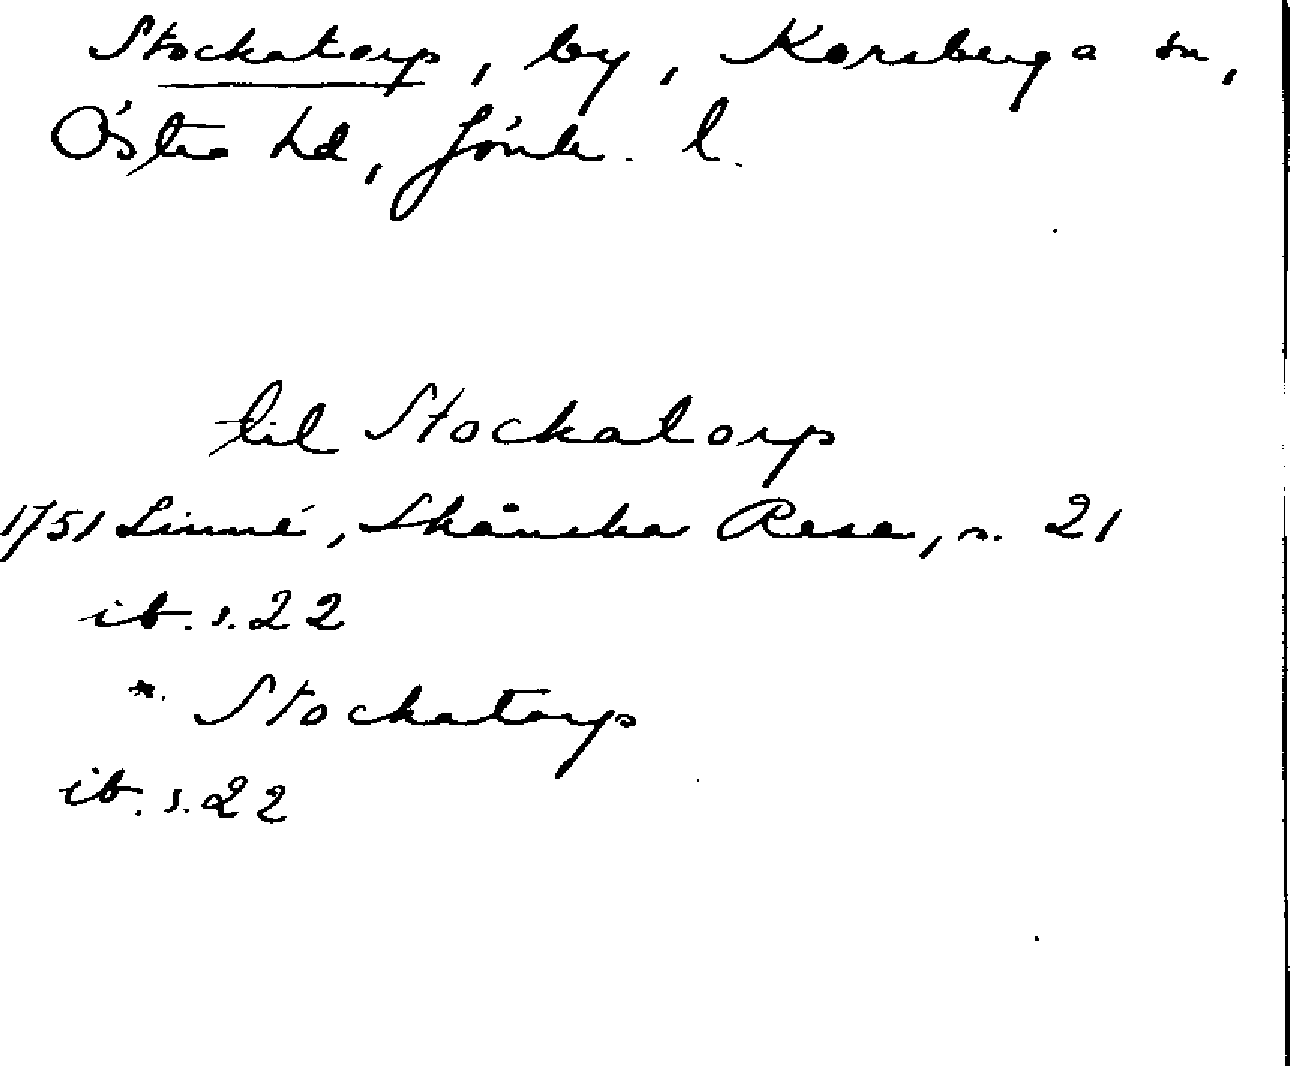 Stockatorp, by, Korsberga sn,
Östra hd, Jönk. l.
til Stockatorp
1751 Linné, Skånska Resa, s. 21
ib. s. 22
*. Stockatorp
ib. s. 22